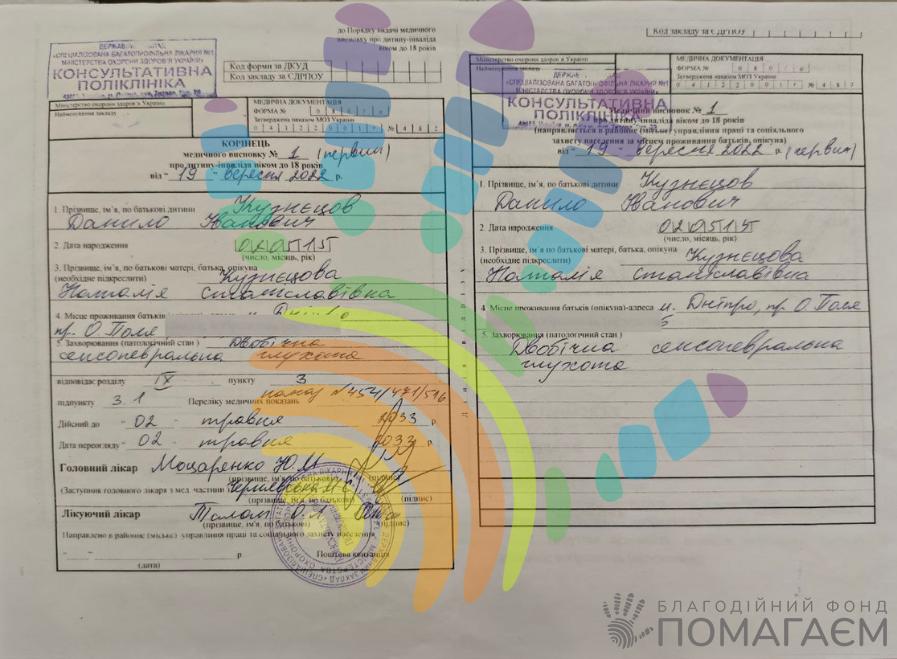 до Порядку видачі медичного
висновку про дитину-інваліда
віком до 18 років
ДЕРЖАВНИЙ ЗАКЛАД
«СПЕЦІАЛІЗОВАНА БАГАТОПРОФІЛЬНА ЛІКАРНЯ №1
МІНІСТЕРСТВА ОХОРОНИ ЗДОРОВ'Я УКРАЇНИ»
КОНСУЛЬТАТИВНА
ПОЛІКЛІНІКА
Код форми за ДКУД
Код закладу за ЄДРПОУ
Міністерство охорони здоров'я України
Найменування закладу
МЕДИЧНА ДОКУМЕНТАЦІЯ
ФОРМА №
Затверджена наказом МОЗ України
0 4 1 2 2 0 0 1 р №4 8 2
КОРІНЕЦЬ
медичного висновку № 1 (первин)
про дитину-інваліда віком до 18 років
від "19 - вересня 2022 р.
1. Прізвище, ім'я, по батькові дитини Кузнєцов
Данило Іванович
2. Дата народження 020515
(число, місяць, рік)
3. Прізвище, ім'я, по батькові матері, батька, опікуна
(необхідне підкреслити) Кузнєцова
Наталія Станіславівна
4. Місце проживання батьків
пр. О. Поля
5. Захворювання (патологічний стан) Двобічна
сенсоневральна глухота
відповідає розділу IX пункту 3
підпункту 3.1 Переліку медичних показань наказ №454/471/516
Дійсний до - 02 - травня 2033 р.
Дата перегляду - 02 - травня 2033 р.
Головний лікар Моцаренко Ю.М
(прізвище, ім'я, по батькові) (підпис)
(Заступник головного лікаря з мед. частини
(прізвище, ім'я, по батькові) (підпис)
Лікуючий лікар О.
(прізвище, ім'я, по батькові) (підпис)
Направлено в районне (міське) управління праці та соціального захисту населення
р Поштова квитанція
(дата)
Код закладу за ЄДРПОУ
Міністерство охорони здоров'я України
Найменування
ДЕРЖАВНИЙ
«СПЕЦІАЛІЗОВАНА БАГАТОПРОФІЛЬНА ЛІКАРНЯ №1
МІНІСТЕРСТВА ОХОРОНИ ЗДОРОВ'Я УКРАЇНИ»
КОНСУЛЬТАТИВНА
ПОЛІКЛІНІКА
МЕДИЧНА ДОКУМЕНТАЦІЯ
ФОРМА №
Затверджена наказом МОЗ України
Медичний висновок № 1
про дитину-інваліда віком до 18 років
(направляється в районне (міське) управління праці та соціального
захисту населення за місцем проживання батьків, опікуна)
від "19 - вересня 2022 р. (первин)
1. Прізвище, ім'я, по батькові дитини Кузнєцов
Данило Іванович
2. Дата народження 020515
(число, місяць, рік)
3. Прізвище, ім'я, по батькові матері, батька, опікуна
(необхідне підкреслити) Кузнєцова
Наталія Станіславівна
4. Місце проживання батьків (опікуна)-адреса м. Дніпро, пр. О. Поля
5
5. Захворювання (патологічний стан) Двобічна сенсоневральна
глухота
БЛАГОДІЙНИЙ ФОНД
ПОМАГАЄМ